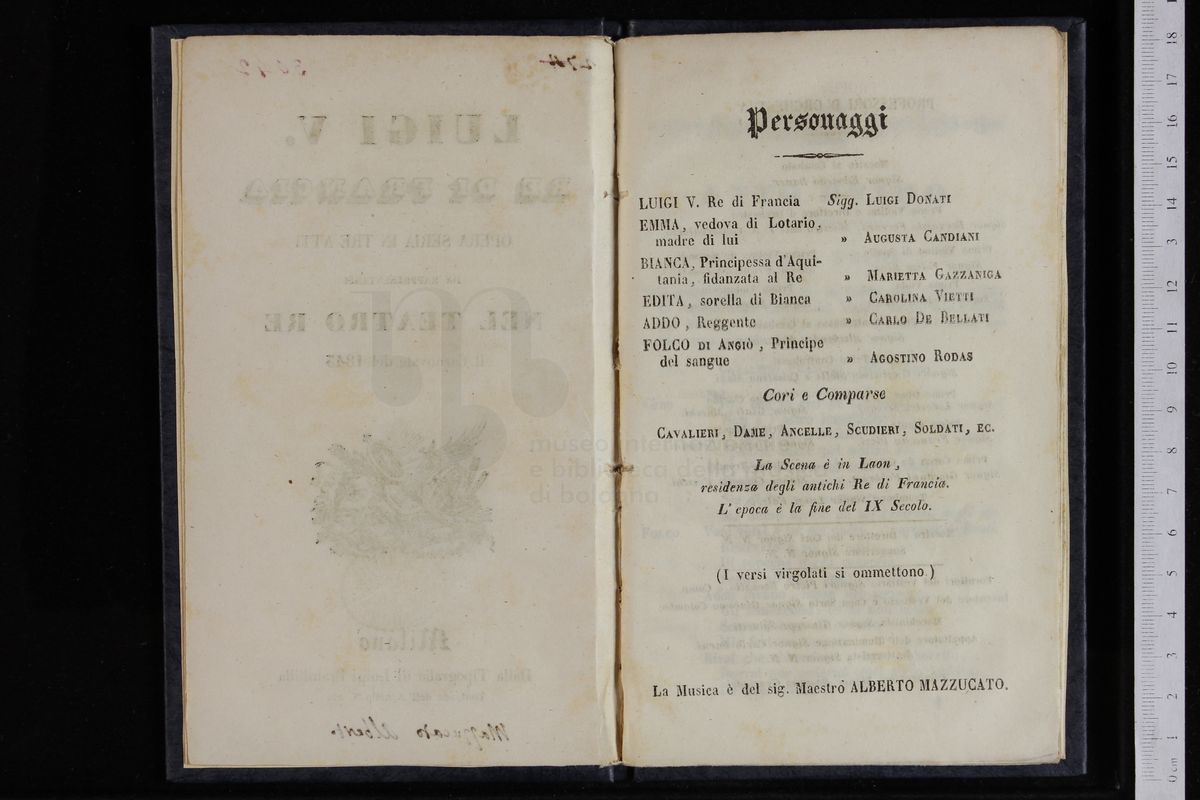 Personaggi
LUIGI V. Re di Francia Sigg. LUIGI DONATI
EMMA, vedova di Lotario,
madre di lui » AUGUSTA CANDIANI
BIANCA, Principessa d'Aqui-
tania, fidanzata al Re » MARIETTA GAZZANIGA
EDITA, sorella di Bianca » CAROLINA VIETTI
ADDO, Reggente » CARLO DE BELLATI
FOLCO DI ANGIÒ, Principe
del sangue » AGOSTINO RODAS
Cori e Comparse
CAVALIERI, DAME, ANCELLE, SCUDIERI, SOLDATI, EC.
La Scena è in Laon,
residenza degli antichi Re di Francia.
L'epoca è la fine del IX Secolo.
(I versi virgolati si ommettono.)
La Musica è del sig. Maestro ALBERTO MAZZUCATO.
museo internazionale
e biblioteca della
di bologna
0 cm 1 2 3 4 5 6 7 8 9 10 11 12 13 14 15 16 17 18